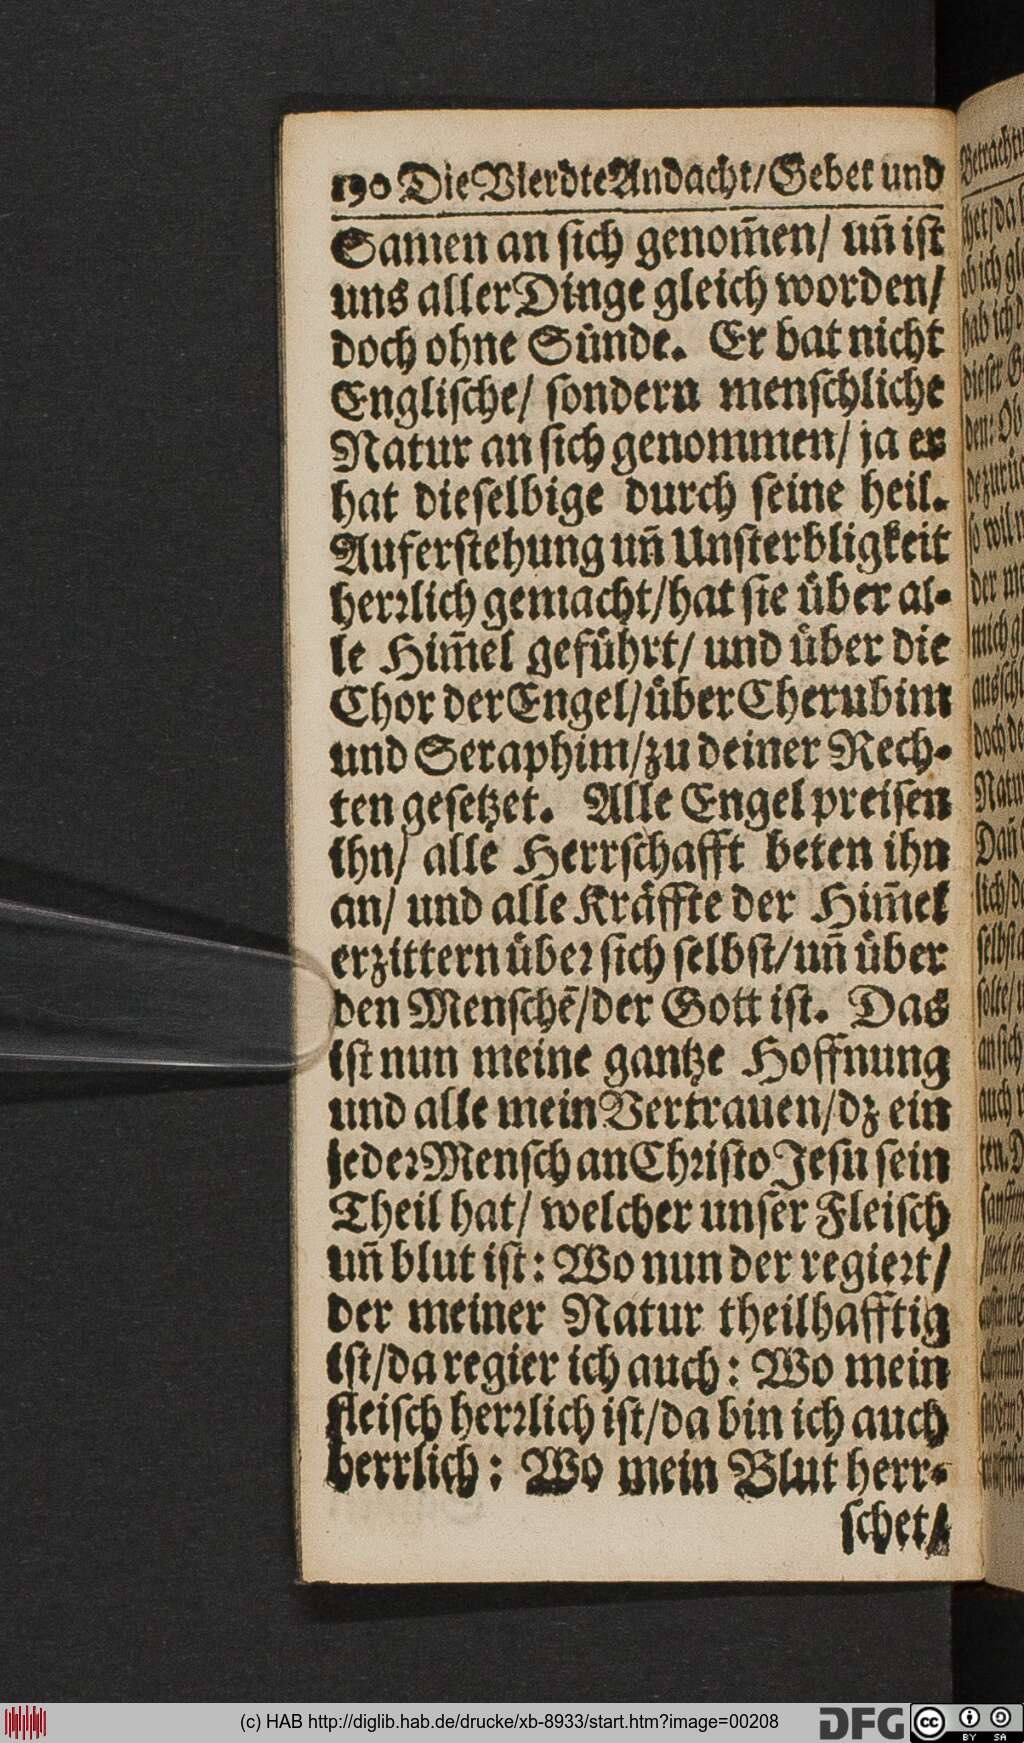 190 Die Vierdte Andacht/ Gebet und
Samen an sich genom̃en/ uñ ist
uns aller Dinge gleich worden/
doch ohne Sünde. Er hat nicht
Englische/ sondern menschliche
Natur an sich genommen/ ja er
hat dieselbige durch seine heil.
Auferstehung uñ Unsterbligkeit
herrlich gemacht/ hat sie über al-
le Him̃el geführt/ und über die
Chor der Engel/ über Cherubim
und Seraphim/ zu deiner Rech-
ten gesetzet. Alle Engel preisen
ihn/ alle Herrschafft beten ihn
an/ und alle Kräffte der Him̃el
erzittern über sich selbst/ uñ über
den Menschē/ der Gott ist. Das
ist nun meine gantze Hoffnung
und alle mein Vertrauen/ dz ein
jeder Mensch an Christo Jesu sein
Theil hat/ welcher unser Fleisch
uñ blut ist: Wo nun der regiert/
der meiner Natur theilhafftig
ist/ da regier ich auch: Wo mein
fleisch herrlich ist/ da bin ich auch
herrlich: Wo mein Blut herr-
schet/
Betrachtu
schet/ da
ob ich gl
hab ich d
dieser G
den: Ob
de zurü
so wil
der me
mich gl
ausschl
doch de
Natu
Dañ
sich/ d
selbst
solte/
an sich
auch
ten. D
(c) HAB http://diglib.hab.de/drucke/xb-8933/start.htm?image=00208
DFG
cc
BY SA